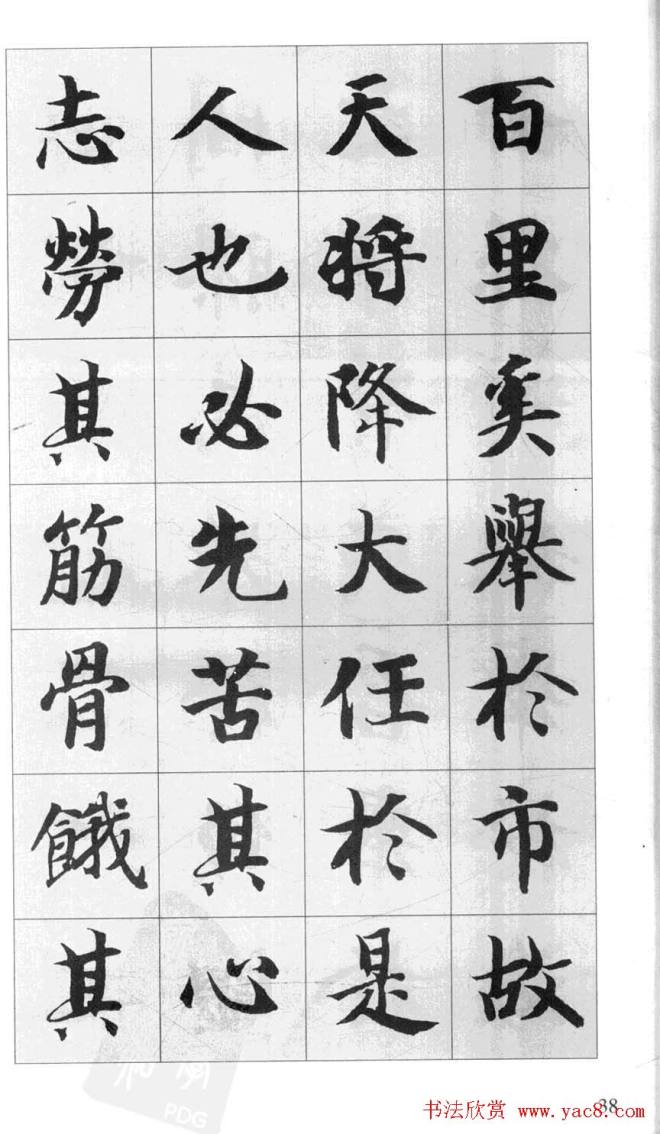 百里奚舉於市故
天將降大任於是
人也必先苦其心
志勞其筋骨餓其
PDG
38
书法欣赏 www.yac8.com